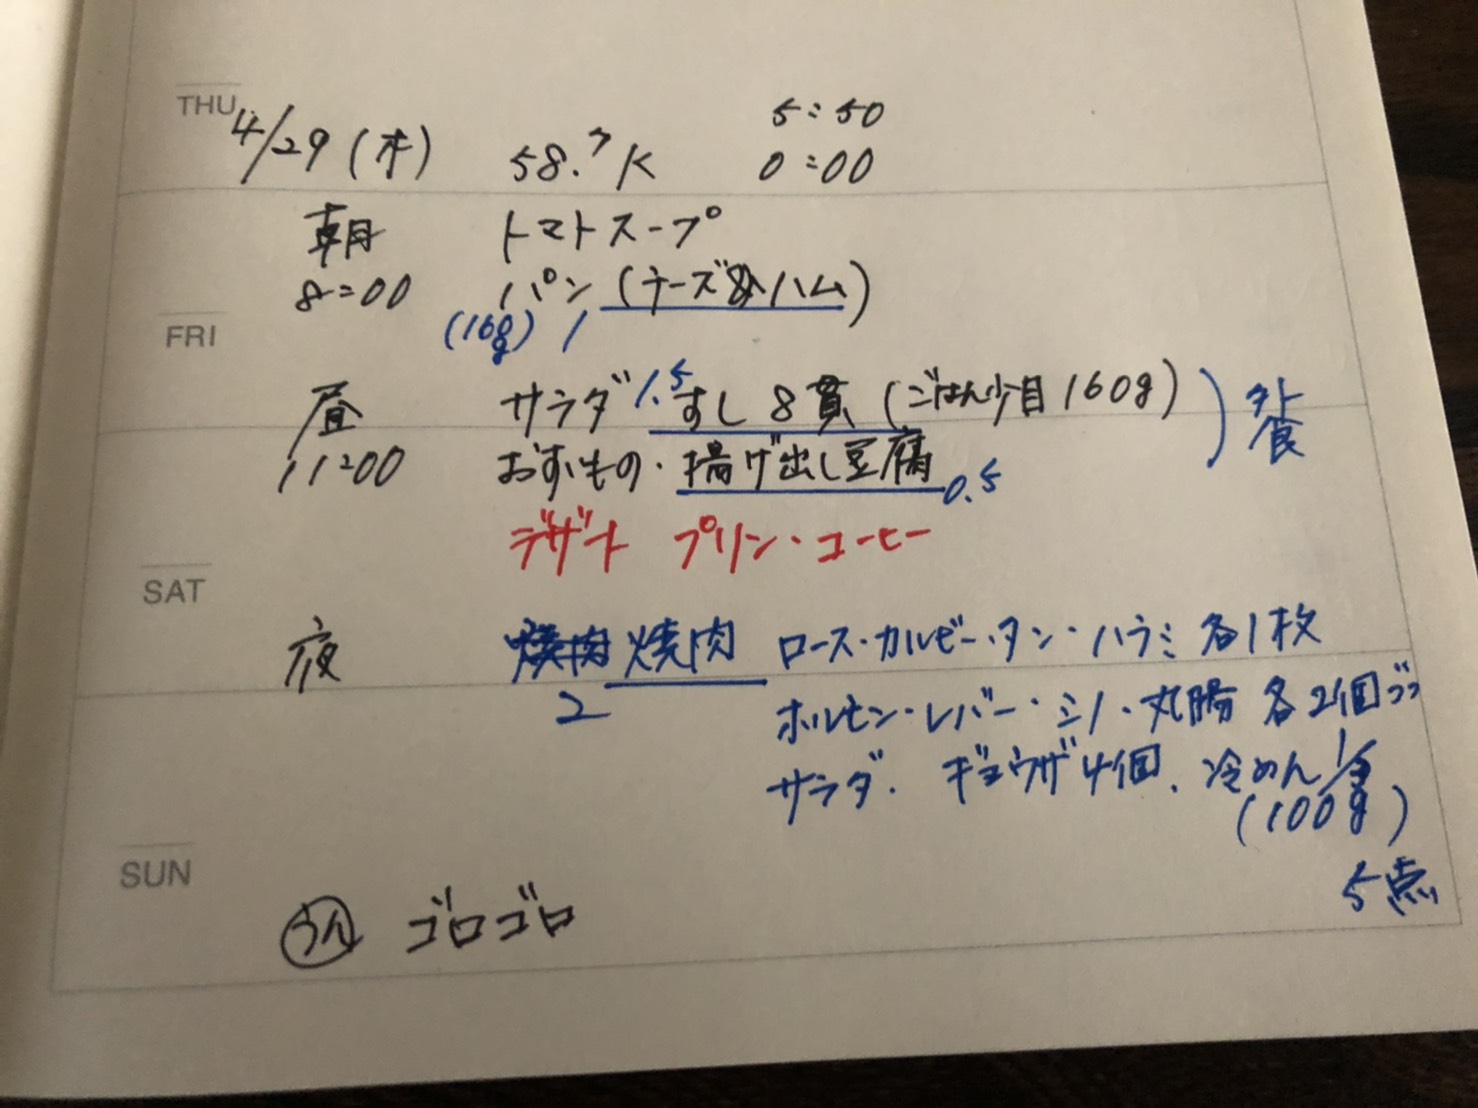 THU
4/29(木) 58.7K 5:50
0:00
朝 トマトスープ
8:00 パン(チーズ&ハム)
(16g) 1
FRI
昼 サラダ 1.5 すし8貫(ごはん少目160g) 外食
11:00 おすいもの・揚げ出し豆腐 0.5
デザート プリン・コーヒー
SAT
夜 焼肉 焼肉 ロース・カルビー・タン・ハラミ各1枚
2 ホルモン・レバー・ミノ・丸腸 各2個づつ
サラダ. ギョウザ4個、冷めん
(100g)
5点
SUN
うん ゴロゴロ